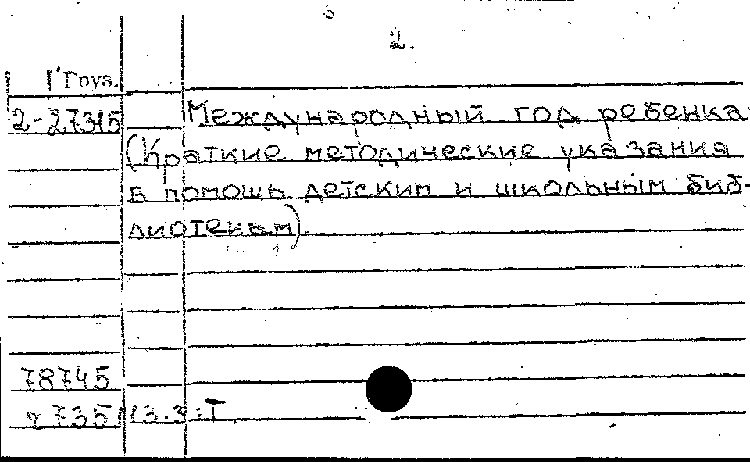 2.
Груз.
2-27315 Международный год ребенка
(Краткие методические указания
в помощь детским и школьным биб-
лиотекам).
78745